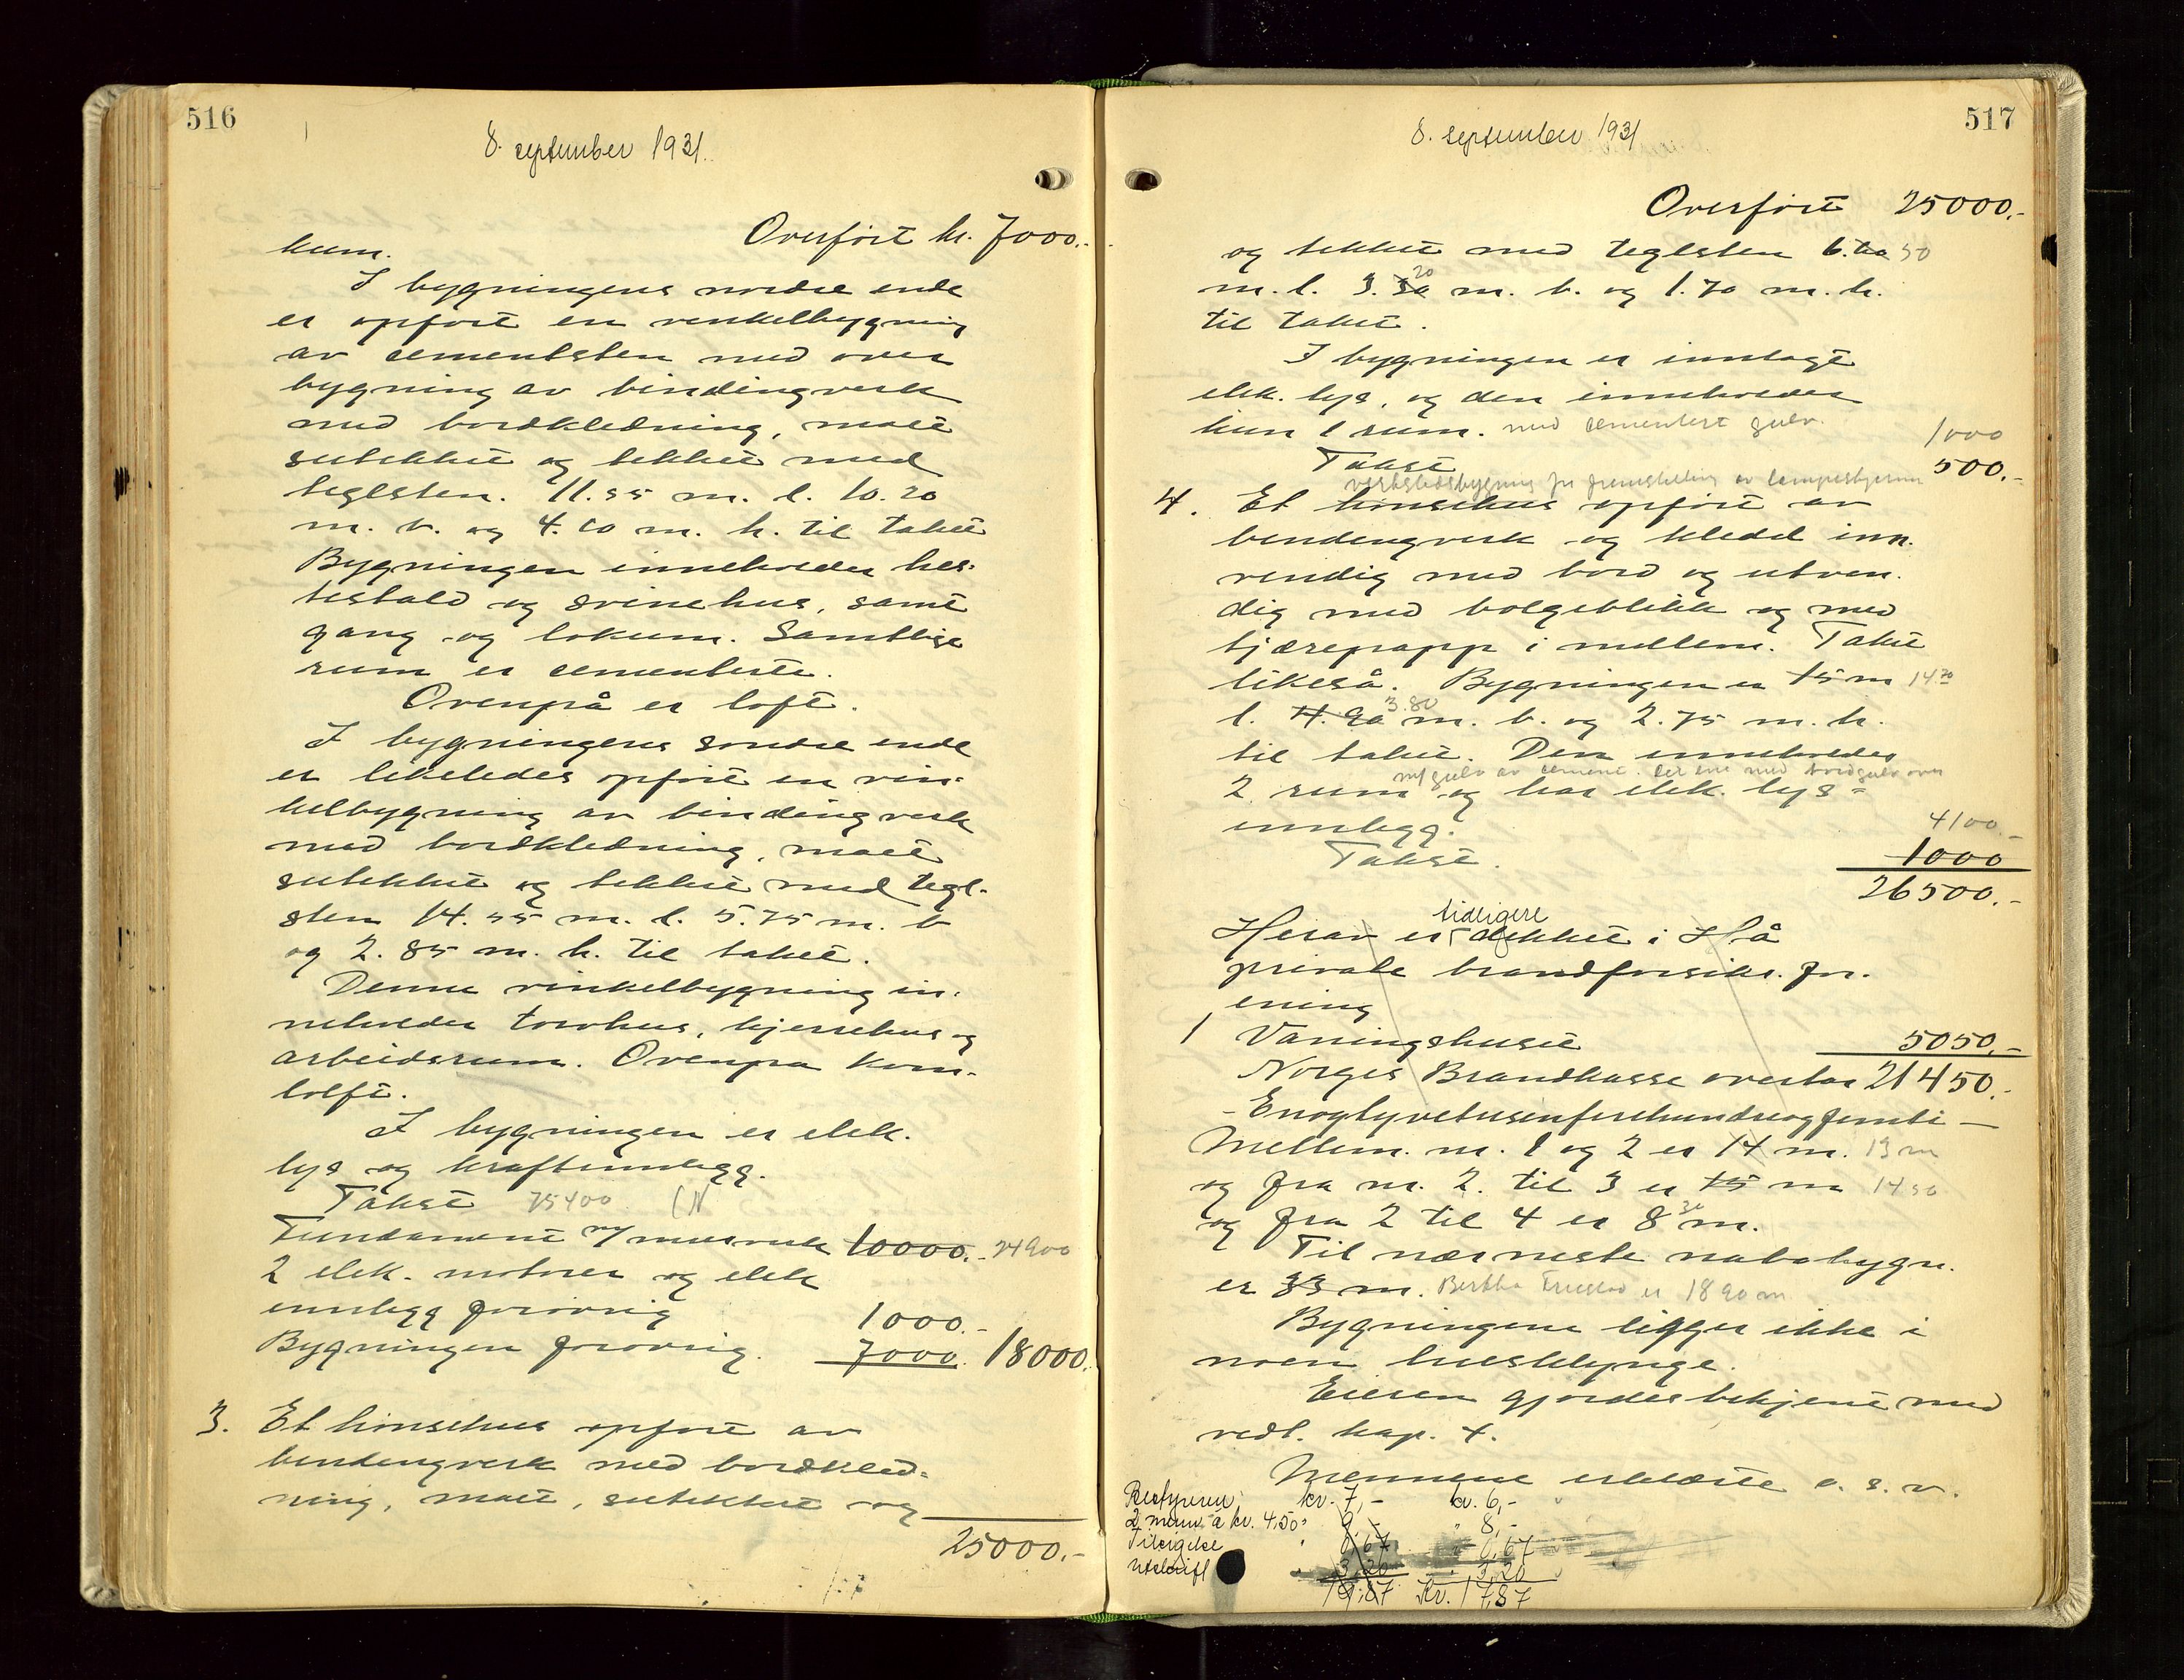 516
8. september 1931.
Overført kr. 7000.-
kum.
I bygningens nordre ende
er opført en vinkelbygning
av cementsten med over
bygning av bindingverk
med bordkledning, malt
sutekket og tekket med
teglsten. 11.55 m. l. 10.20
m. b. og 4.60 m. h. til taket
Bygningen inneholder hes-
testald og svinehus, samt
gang og lokum. Samtlige
rum er cementerte.
Ovenpå er loft.
I bygningens søndre ende
er likeledes opført en vin-
kelbygning av bindingverk
med bordkledning, malt
sutekket og tekket med tegl-
sten 14.55 m. l. 5.75 m. b
og 2.85 m. h. til taket.
Denne vinkelbygning in-
neholder torvhus, kjerrehus og
arbeidsrum. Ovenpa korn-
loft.
I bygningen er elek.
lys og kraftinnlegg.
Takst 75400
Fundament m/ murverk 10000.- 24900
2 elek. motorer og elek
innlegg forøvrig 1000.-
Bygningen forøvrig. 7000. 18000.
3. Et hønsehus opført av
bindingverk med bordkled-
ning, malt, sutekket og
25000.-
517
8. september 1931
Overført 25000.-
og tekket med teglsten 6.60 50
20
m. l. 3.30 m. b. og 1.70 m. h.
til taket.
I bygningen er innlagt
elek. lys, og den inneholder
kun 1 rum. med cementert gulv.
1000
Takst 500.-
verkstedsbygning for fremstilling av lampeskjerm
4. Et hønsehus opført av
bindingverk og kledd inn-
vendig med bord og utven-
dig med bølgeblikk og med
tjærepapp i mellem. Taket
likeså. Bygningen er 15 m 14.70
3.80
l. 4.90 m. b. og 2.75 m. h.
til taket. Den inneholder
m/gulv av cement. det ene med bordgulv over
2 rum og har elek. lys-
innlegg.
4100.-
Takst. 1000
26500.-
tidligere
Herav er dekket i Hå
private brandforsikr. for-
ening
1 Våningshuset 5050.-
Norges Brandkasse overtar 21450.-
- Enogtyvetusenfirehundreogfemti -
Mellem nr. 1 og 2 er 14 m. 13 m
og fra nr. 2. til 3 er 15 m 14 50
og fra 2 til 4 er 8 30 m.
Til nærmeste nabobygn.
er 33 m. Bertha er 18 90 m
Bygningene ligger ikke i
noen husklynge.
Eieren gjordes bekjent med
vedl. kap. 4.
Mennene erklærte o. s. v.
Bestyreren kr. 7,- kr. 6,-
2 menn a kr. 4,50 " 9,- " 8,-
Tilsigelse " 0,67 " 0,67
Utskrift " 3,20 " 3,20
19,87 Kr. 17,87